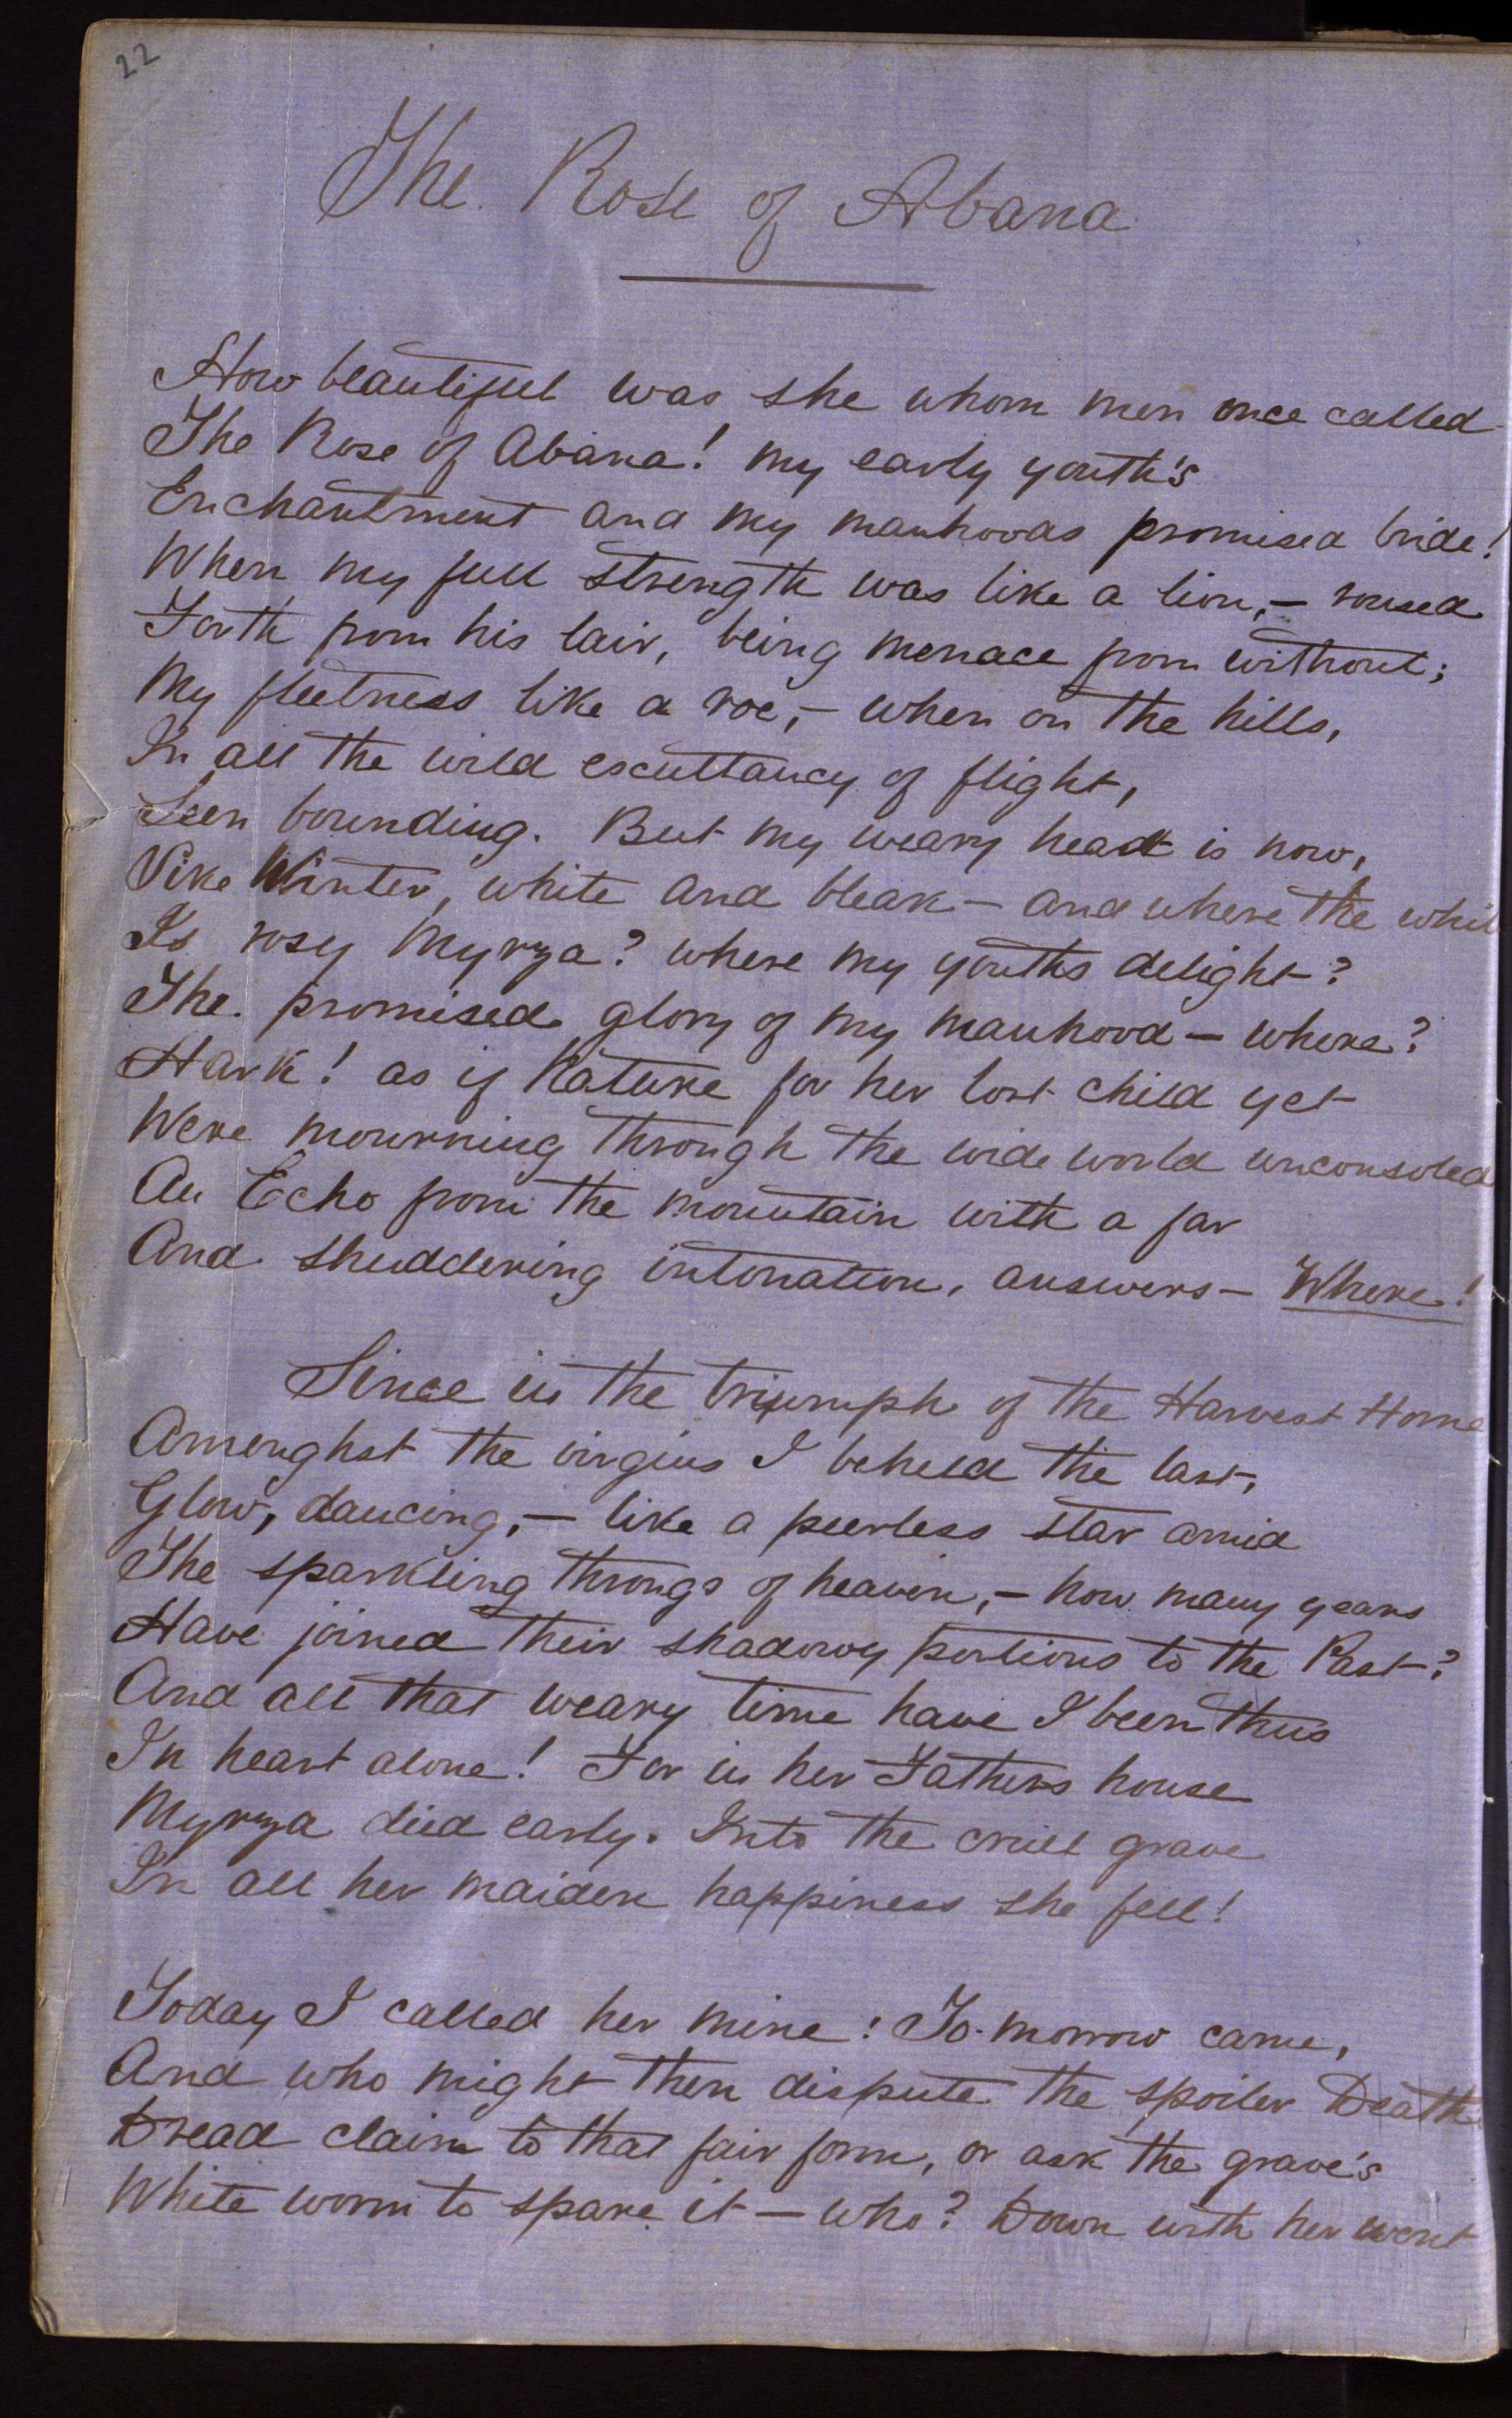 22
The Rose of Abana
How beautiful was she whom men once called
The Rose of Abana! my early youth's
Enchantment and my manhoods promised bride!
When my full strength was like a lion,— roused
Forth from his lair, being menace from without;
My fleetness like a roe,— when on the hills,
In all the wild exultancy of flight,
Seen bounding. But my weary head is now,
Like Winter, white and bleak — and where the whil
Is rosy Myrza? where my youths delight?
The promised glory of my manhood — where?
Hark! as if Nature for her lost child yet
Were mourning through the wide world unconsoled
An Echo from the mountain with a far
And shuddering intonation, answers — Where!
Since in the triumph of the Harvest Home
Amonghst the virgins I beheld the last,
Glow, dancing,— like a peerless star amid
The sparkling throngs of heaven,— how many years
Have joined their shadowy portions to the Past?
And all that weary time have I been thus
In heart alone! For in her Fathers house
Myrza died early. Into the cruel grave
In all her maiden happiness she fell!
Today I called her mine: To-morrow came,
And who might then dispute the spoiler Death
Dread claim to that fair form, or ask the grave's
White worm to spare it — who? Down with her went